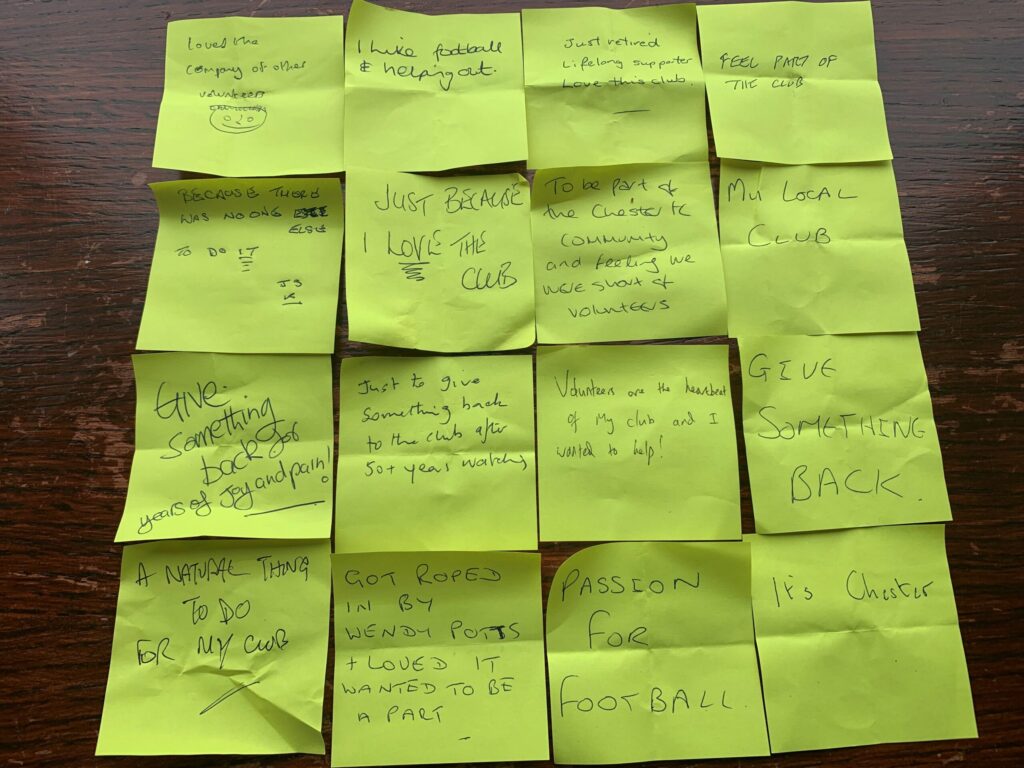 Loved the
company of other
volunteers
I like football
& helping out.
Just retired
Lifelong supporter
Love this club.
FEEL PART OF
THE CLUB
BECAUSE THERE
WAS NO ONE
ELSE
TO DO IT
JUST BECAUSE
I LOVE THE
CLUB
To be part of
the Chester FC
COMMUNITY
and feeling we
were short of
VOLUNTEERS
My LOCAL
CLUB
GIVE
Something
back for
years of Joy and pain!
Just to give
something back
to the club after
50+ years watching
Volunteers are the heartbeat
of My club and I
wanted to help!
GIVE
SOMETHING
BACK.
A NATURAL THING
TO DO
FOR MY CLUB
GOT ROPED
IN BY
WENDY POTTS
+ LOVED IT
WANTED TO BE
A PART
PASSION
FOR
FOOTBALL.
It's Chester